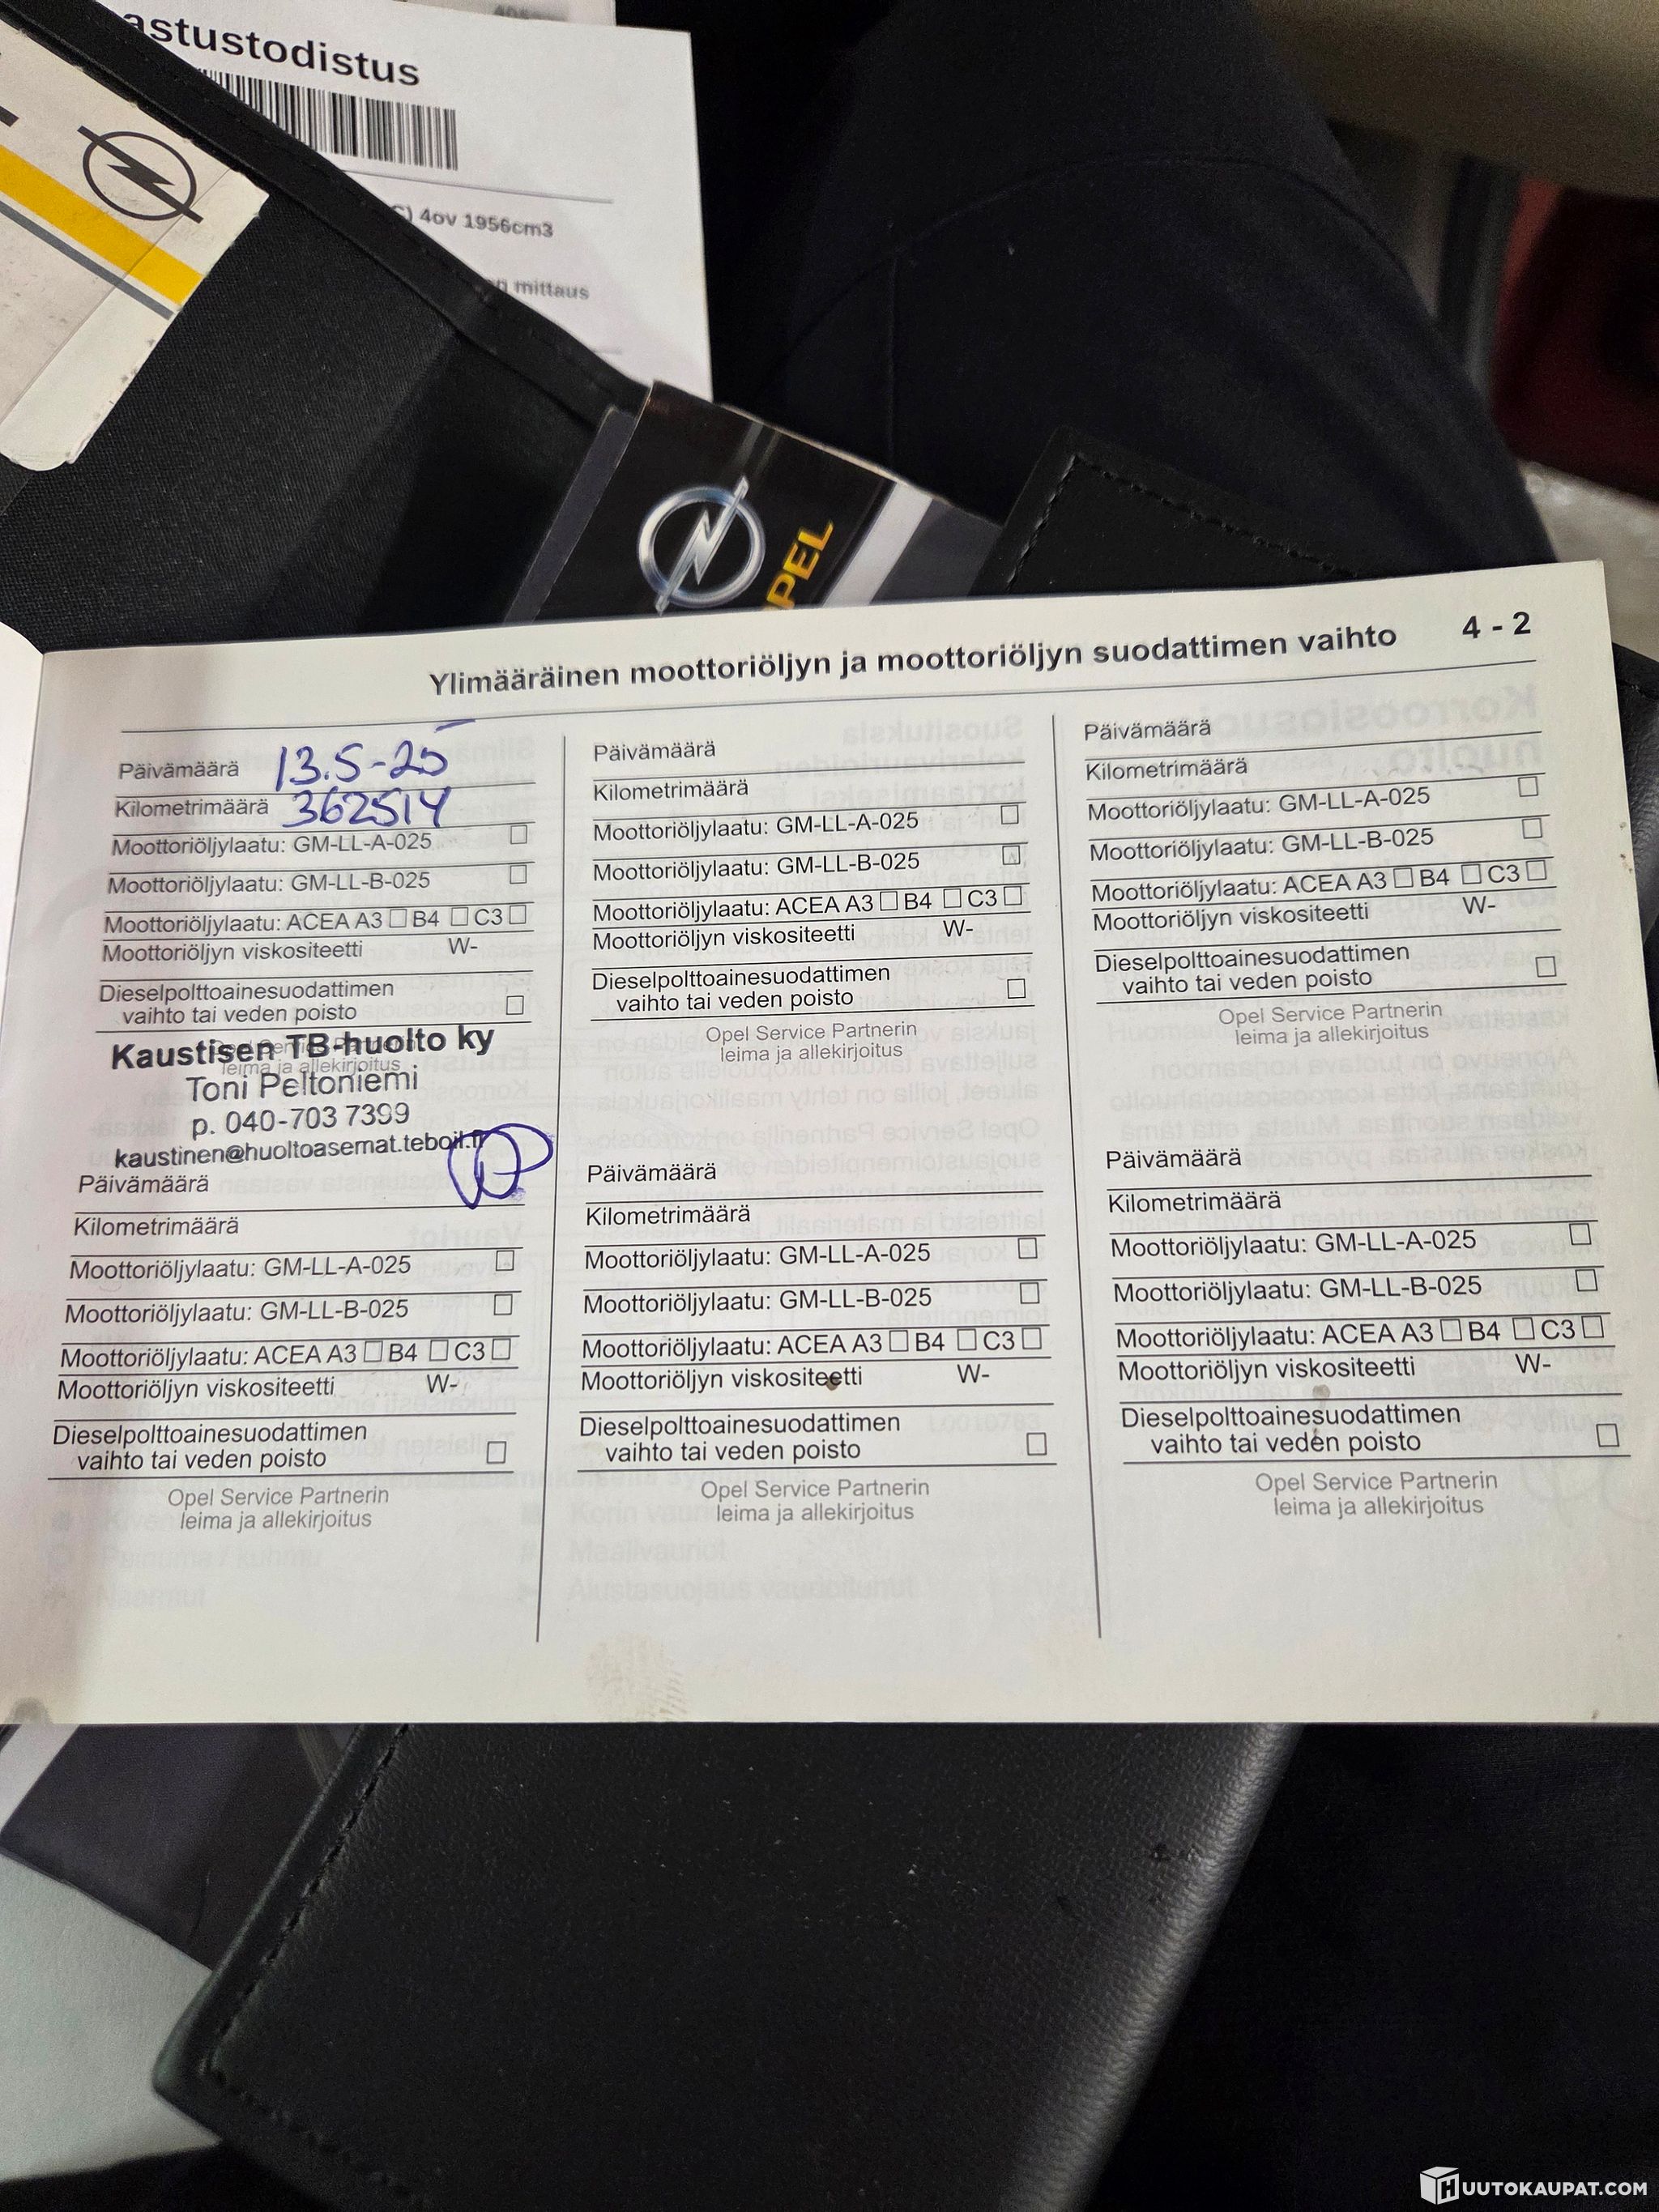 astustodistus
4ov 1956cm3
mittaus
OPEL
Ylimääräinen moottoriöljyn ja moottoriöljyn suodattimen vaihto 4 - 2
Päivämäärä 13.5-25
Kilometrimäärä 362514
Moottoriöljylaatu: GM-LL-A-025
Moottoriöljylaatu: GM-LL-B-025
Moottoriöljylaatu: ACEA A3 B4 C3
Moottoriöljyn viskositeetti W-
Dieselpolttoainesuodattimen
vaihto tai veden poisto
Opel Service Partnerin
leima ja allekirjoitus
Kaustisen TB-huolto ky
Toni Peltoniemi
p. 040-703 7399
kaustinen@huoltoasemat.teboil.fi
Päivämäärä
Kilometrimäärä
Moottoriöljylaatu: GM-LL-A-025
Moottoriöljylaatu: GM-LL-B-025
Moottoriöljylaatu: ACEA A3 B4 C3
Moottoriöljyn viskositeetti W-
Dieselpolttoainesuodattimen
vaihto tai veden poisto
Opel Service Partnerin
leima ja allekirjoitus
Päivämäärä
Kilometrimäärä
Moottoriöljylaatu: GM-LL-A-025
Moottoriöljylaatu: GM-LL-B-025
Moottoriöljylaatu: ACEA A3 B4 C3
Moottoriöljyn viskositeetti W-
Dieselpolttoainesuodattimen
vaihto tai veden poisto
Opel Service Partnerin
leima ja allekirjoitus
Päivämäärä
Kilometrimäärä
Moottoriöljylaatu: GM-LL-A-025
Moottoriöljylaatu: GM-LL-B-025
Moottoriöljylaatu: ACEA A3 B4 C3
Moottoriöljyn viskositeetti W-
Dieselpolttoainesuodattimen
vaihto tai veden poisto
Opel Service Partnerin
leima ja allekirjoitus
Päivämäärä
Kilometrimäärä
Moottoriöljylaatu: GM-LL-A-025
Moottoriöljylaatu: GM-LL-B-025
Moottoriöljylaatu: ACEA A3 B4 C3
Moottoriöljyn viskositeetti W-
Dieselpolttoainesuodattimen
vaihto tai veden poisto
Opel Service Partnerin
leima ja allekirjoitus
Päivämäärä
Kilometrimäärä
Moottoriöljylaatu: GM-LL-A-025
Moottoriöljylaatu: GM-LL-B-025
Moottoriöljylaatu: ACEA A3 B4 C3
Moottoriöljyn viskositeetti W-
Dieselpolttoainesuodattimen
vaihto tai veden poisto
Opel Service Partnerin
leima ja allekirjoitus
HUUTOKAUPAT.COM